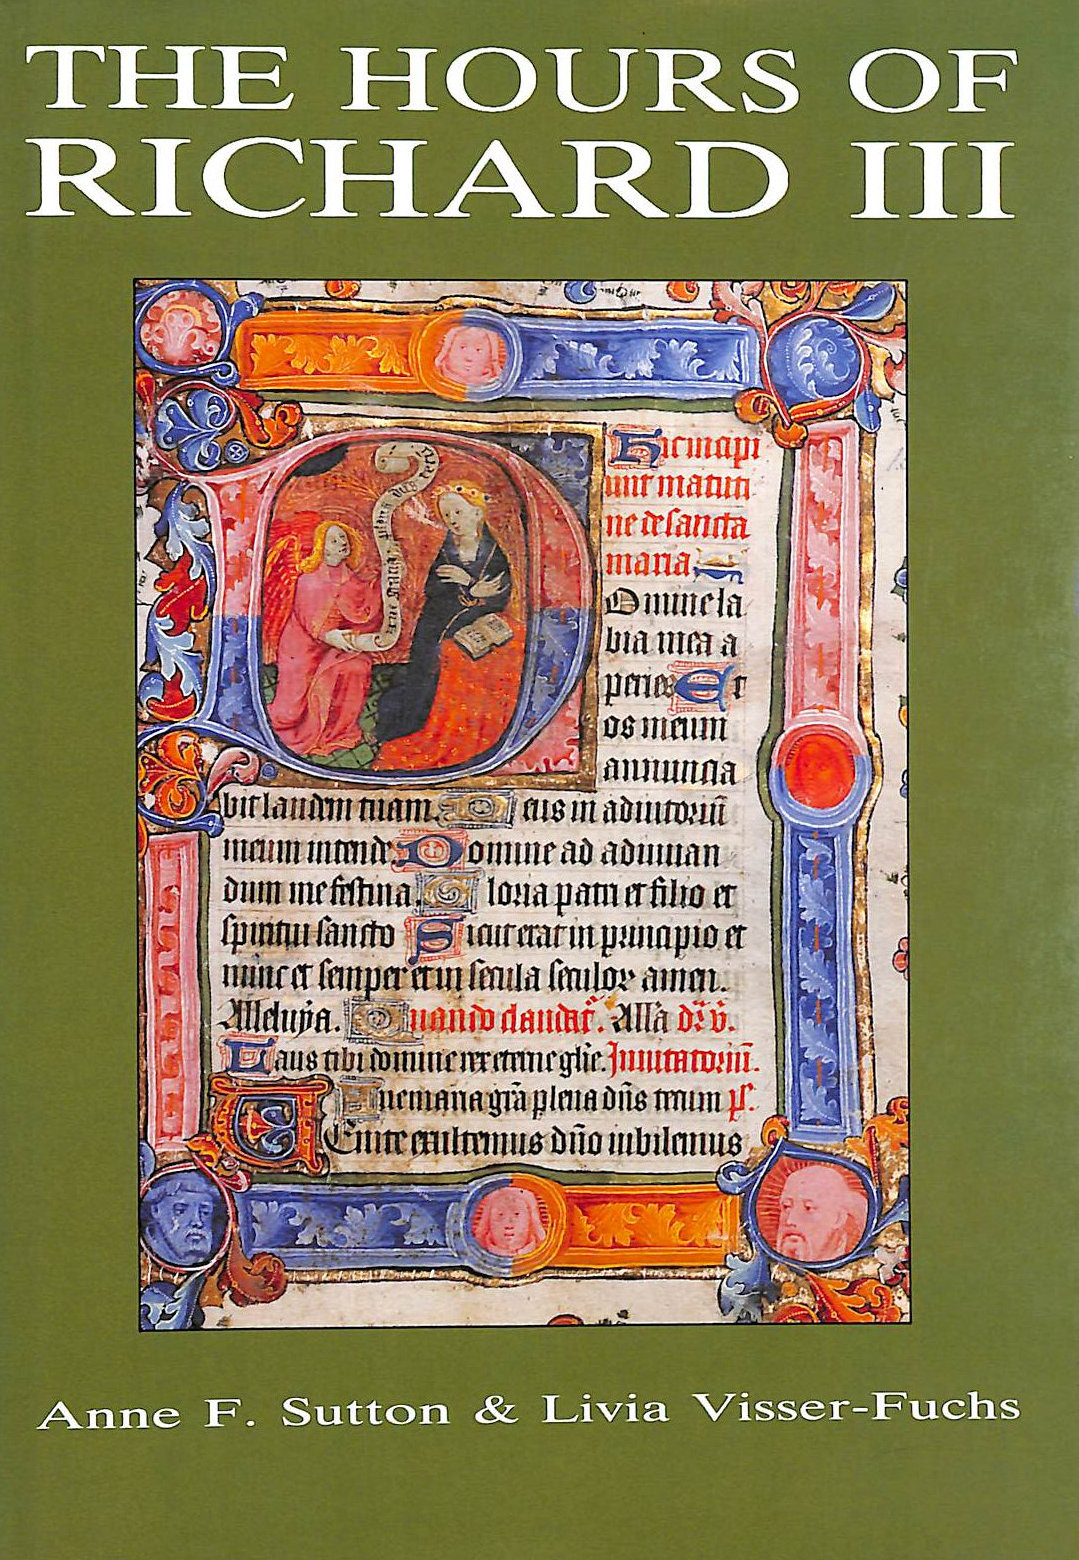 THE HOURS OF
RICHARD III
Hic incipi
unt matuti
ne de sancta
maria
Domine la
bia mea a
peries Et
os meum
annuncia
bit laudem tuam. Deus in adiutoriū
meum intende Domine ad adiuuan
dum me festina. Gloria patri et filio et
spiritui sancto Sicut erat in principio et
nunc et semper et in secula seculoꝝ amen.
Alleluya. Quando claudat͛. Alła
Laus tibi domine rex eterne glīe. Inuitatoriū.
Aue maria grā plena dn̄s tecum ps̄.
Uenite exultemus dn̄o iubilemus
Anne F. Sutton & Livia Visser-Fuchs